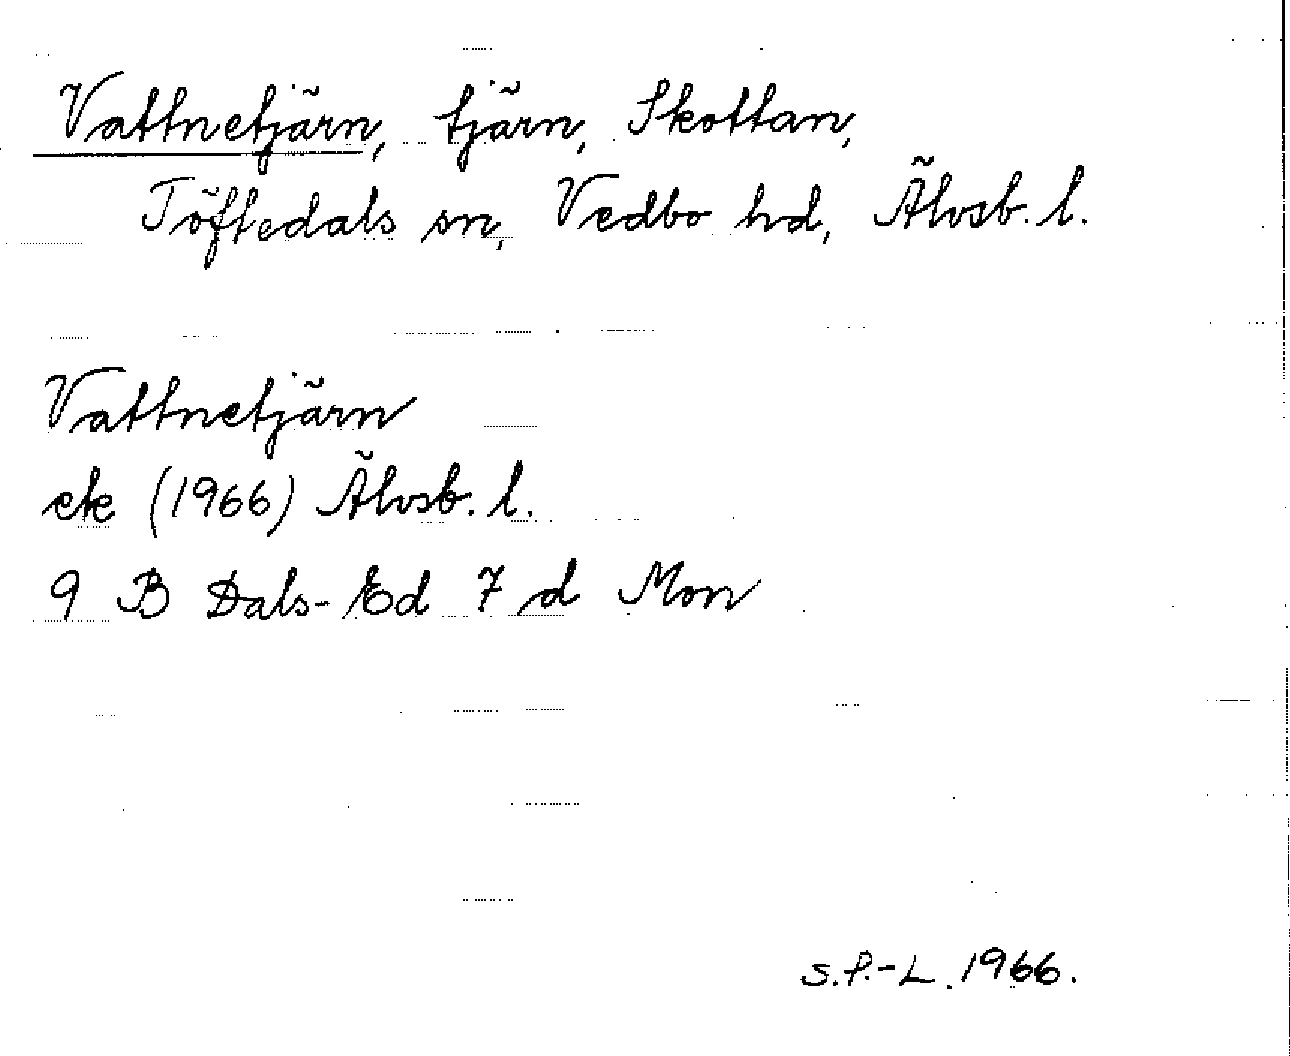 Vattnetjärn, tjärn, Skottan,
Töftedals sn, Vedbo hd, Älvsb. l.
Vattnetjärn
ek (1966) Älvsb. l.
9 B Dals-Ed 7 d Mon
S.P.-L. 1966.